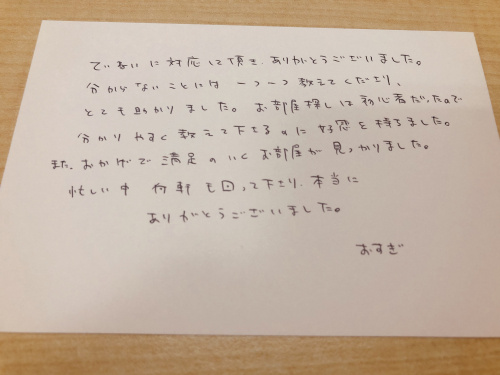 ていねいに対応して頂き、ありがとうございました。
分からないことには一つ一つ教えてくださり、
とても助かりました。お部屋探しは初心者だったので
分かりやすく教えて下さるのに好感を持ちました。
また、おかげで満足のいくお部屋が見つかりました。
忙しい中 何軒も回って下さり、本当に
ありがとうございました。
おすぎ